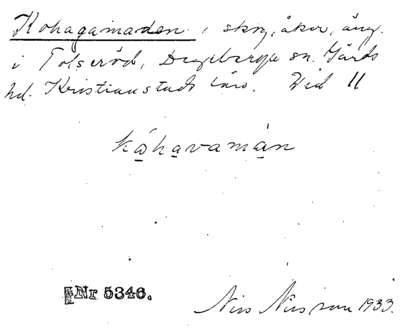 Kohagamaden, skog, åker, äng.
i Tolseröd, Degeberga sn. Gärds
hd. Kristianstads län. Vid 11
kóhavamán
Nr 5346.
Nils Nilsson 1933.